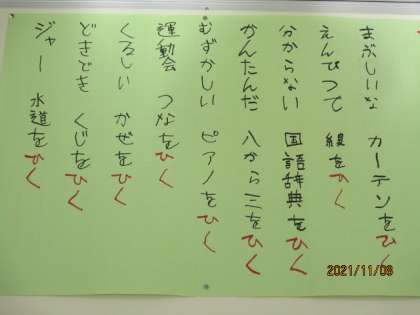 まぶしいな カーテンをひく
えんぴつで 線をひく
分からない 国語辞典をひく
かんたんだ 八から三をひく
むずかしい ピアノをひく
運動会 つなをひく
くるしい かぜをひく
どきどき くじをひく
ジャー 水道をひく
2021/11/08